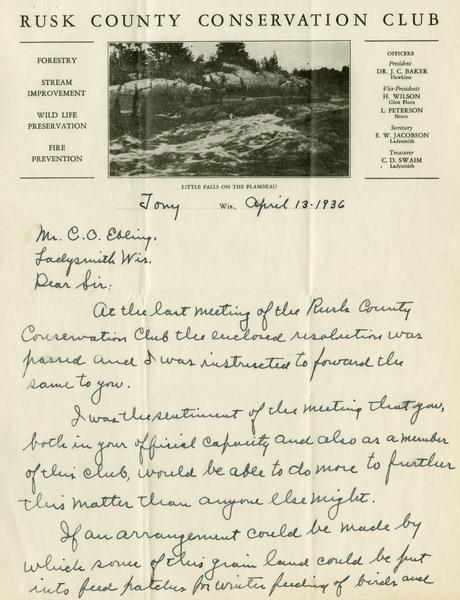 RUSK COUNTY CONSERVATION CLUB
FORESTRY
STREAM
IMPROVEMENT
WILD LIFE
PRESERVATION
FIRE
PREVENTION
OFFICERS
President
DR. J. C. BAKER
Hawkins
Vice-Presidents
H. WILSON
Glen Flora
L. PETERSON
Bruce
Secretary
E. W. JACOBSON
Ladysmith
Treasurer
C. D. SWAIM
Ladysmith
LITTLE FALLS ON THE FLAMBEAU
Tony Wis., April 13-1936
Mr. C. O. Ebling,
Ladysmith Wis.
Dear Sir:
At the last meeting of the Rusk County
Conservation Club the enclosed resolution was
passed and I was instructed to foward the
same to you.
I was the sentiment of the meeting that you,
both in your official capacity and also as a member
of this club, would be able to do more to further
this matter than anyone else might.
If an arrangement could be made by
which some of this grain land could be put
into feed patches for winter feeding of birds and